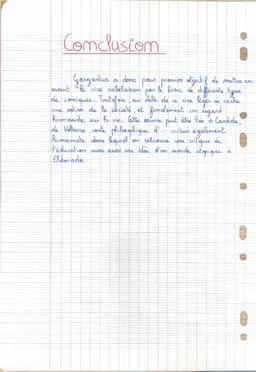 Conclusion
Gargantua a donc pour premier objectif de mettre en
avant le rire rabelaisien par le biais de différents types
de comiques. Toutefois, au delà de ce rire léger se cache
une satire de la société, et finalement un regard
humaniste sur la vie. Cette œuvre peut être liée à Candide,
de Voltaire, conte philosophique d' également
humaniste dans lequel on retrouve une critique de
l'éducation mais aussi une idée d'un monde utopique à
Eldorado.